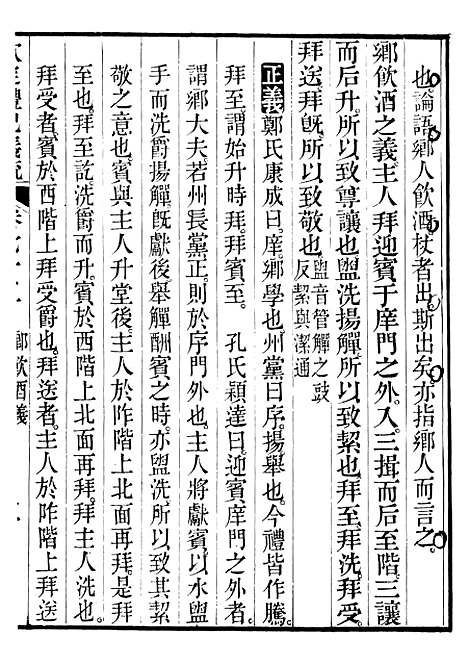 也論語鄉人飲酒杖者出斯出矣亦指鄉人而言之
鄉飲酒之義主人拜迎賓于庠門之外入三揖而后至階三讓
而后升所以致尊讓也盥洗揚觶所以致絜也拜至拜洗拜受
拜送拜旣所以致敬也盥音管觶之豉
反絜與潔通
正義鄭氏康成曰庠鄉學也州黨曰序揚舉也今禮皆作騰
拜至謂始升時拜拜賓至 孔氏穎達曰迎賓庠門之外者
謂鄉大夫若州長黨正則於序門外也主人將獻賓以水盥
手而洗爵揚觶旣獻後舉觶酬賓之時亦盥洗所以致其絜
敬之意也賓與主人升堂後主人於阼階上北面再拜是拜
至也拜至訖洗爵而升賓於西階上北面再拜拜主人洗也
拜受者賓於西階上拜受爵也拜送者主人於阼階上拜送
欽定禮記義疏 卷七十二 鄉飲酒義